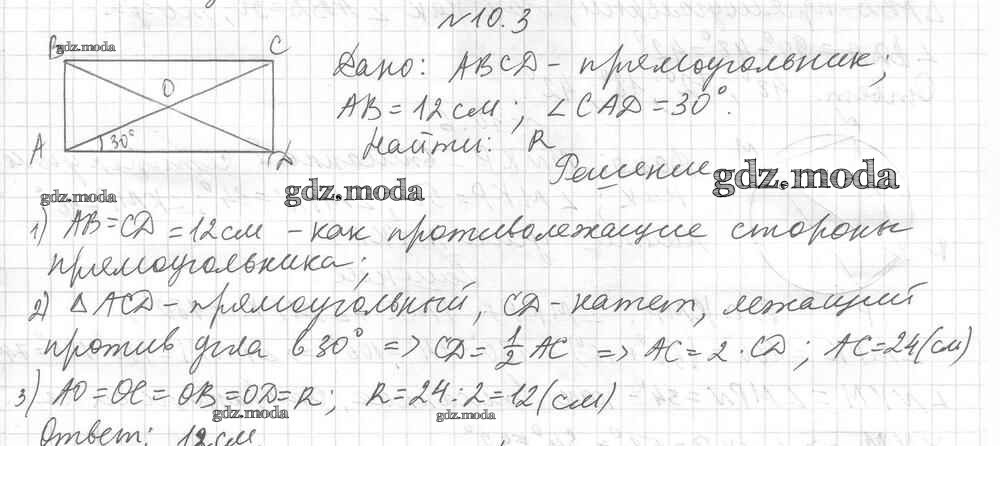 №10.3
B
gdz.moda
C
O
A
30°
D
Дано: ABCD - прямоугольник;
AB = 12 см; ∠CAD = 30°.
Найти: R
Решение
gdz.moda
gdz.moda
gdz.moda
1) AB = CD = 12 см - как противолежащие стороны
прямоугольника;
2) △ACD - прямоугольный, CD - катет, лежащий
против угла в 30° => CD = 1/2 AC => AC = 2 · CD; AC = 24 (см)
3) AO = OC = OB = OD = R; R = 24 : 2 = 12 (см)
gdz.moda
gdz.moda
Ответ: 12 см